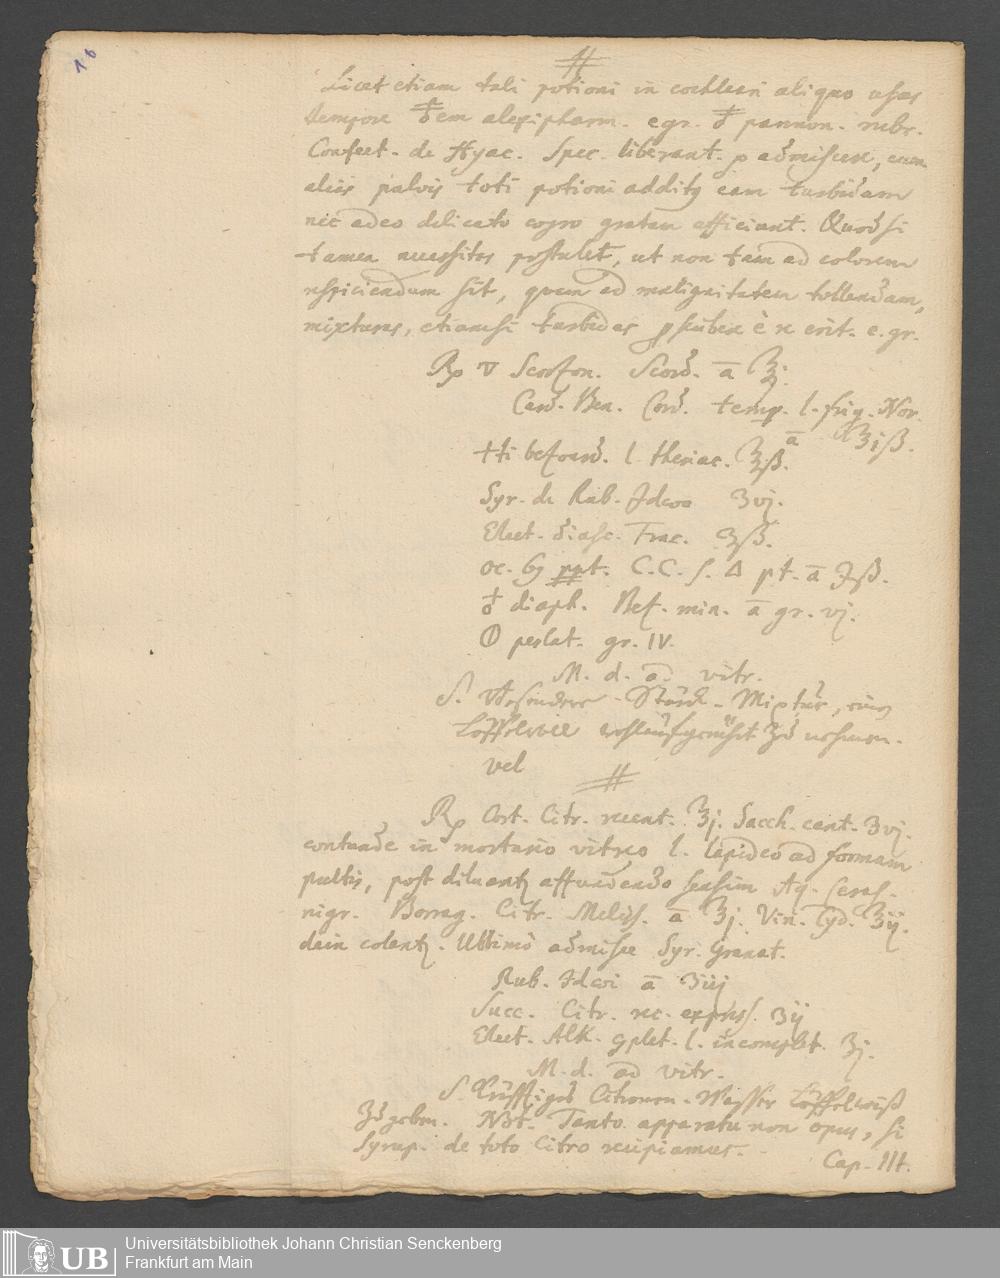 16
#
Licet etiam tali potioni in cochleari aliquo usus
tempore ♁em alexipharm. egr. ♁ pannon. rubr.
Confect. de Hyac. Spec. liberant. p admiscere, cum
aliis pulvis toti potioni additq eam turbidam
nec adeo delicato gratam efficiant. Quodsi
tamen necessitas postulet, ut non tam ad colorem
respiciendum sit, quam ad malignitatem tollendam,
mixturas, etiamsi turbidas è re erit. e. gr.
Rp ▽ Scorzon. Scord. a ℥j.
Card. Ben. Cord. temp. l. frig. Nor.
a ℥iß.
bezoard. l. theriac. ℥ß.
Syr. de Rub. Idaeo ʒvj.
Elect. diasc. Frac. ʒß.
oc. 69 ppt. C.C. s. △ pt. a ℈ß.
♁ diaph. Bez. min. a gr. vj.
peslat. gr. IV.
M. d. ad vitr.
S. Stärck-Mixtur,
Löffelweis zu nehmen.
vel
#
Rp Cort. Citr. recent. ℥j. Sacch. cant. ʒvj.
contunde in mortario vitreo l. lapideo ad formam
pultis, post affundendo sensim Aq. Ceras.
nigr. Borrag. Citr. Meliss. a ℥j. Vin. Cyd. ℥ij.
dein colentq. Ultimò admisce Syr. Granat.
Rub. Idaei a ʒiij
Succ. Citr. rec. express. ʒij
Elect. Alk. gplet. l. incomplet. ʒj.
M. d. ad vitr.
S. Kräfftiges Citronen-Wasser Löffelweiß
zu geben. Nöt. Tanto apparatu non opus, si
Syrup. de toto Citro recipiamus.
Cap. III.
UB
Universitätsbibliothek Johann Christian Senckenberg
Frankfurt am Main